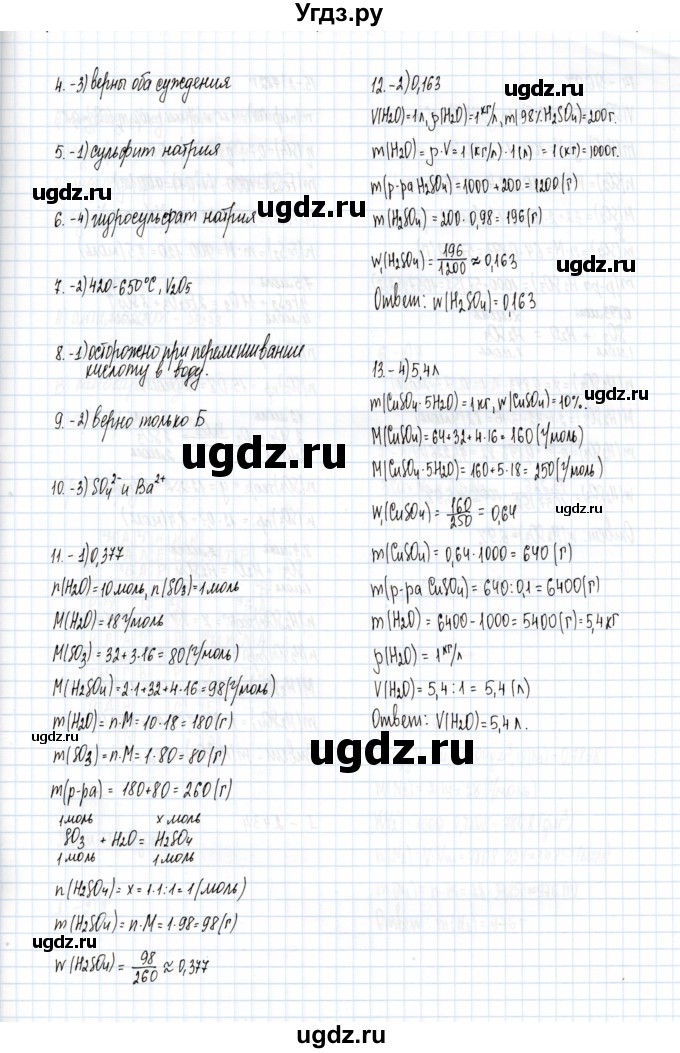 Угдз.ру
4. -3) верны оба суждения
5. -1) сульфит натрия
6. -4) гидросульфат натрия
7. -2) 420-650°C, V₂O₅
8. -1) осторожно при перемешивании
кислоту в воду.
9. -2) верно только Б
10. -3) SO₄²⁻ и Ba²⁺
11. -1) 0,377
n(H₂O)=10 моль, n(SO₃)=1 моль
M(H₂O)=18 г/моль
M(SO₃)=32+3·16=80(г/моль)
M(H₂SO₄)=2·1+32+4·16=98(г/моль)
m(H₂O)=n·M=10·18=180(г)
m(SO₃)=n·M=1·80=80(г)
m(р-ра)=180+80=260(г)
1 моль x моль
SO₃ + H₂O = H₂SO₄
1 моль 1 моль
n(H₂SO₄)=x=1·1:1=1(моль)
m(H₂SO₄)=n·M=1·98=98(г)
w(H₂SO₄)=98/260≈0,377
12. -2) 0,163
V(H₂O)=1л, ρ(H₂O)=1кг/л, m(98% H₂SO₄)=200г.
m(H₂O)=ρ·V=1(кг/л)·1(л)=1(кг)=1000г.
m(р-ра H₂SO₄)=1000+200=1200(г)
m(H₂SO₄)=200·0,98=196(г)
w(H₂SO₄)=196/1200≈0,163
Ответ: w(H₂SO₄)=0,163
13. -4) 5,4л
m(CuSO₄·5H₂O)=1кг, w(CuSO₄)=10%.
M(CuSO₄)=64+32+4·16=160(г/моль)
M(CuSO₄·5H₂O)=160+5·18=250(г/моль)
w(CuSO₄)=160/250=0,64
m(CuSO₄)=0,64·1000=640(г)
m(р-ра CuSO₄)=640:0,1=6400(г)
m(H₂O)=6400-1000=5400(г)=5,4кг
ρ(H₂O)=1кг/л
V(H₂O)=5,4:1=5,4(л)
Ответ: V(H₂O)=5,4л.
ugdz.ru
ugdz.ru
ugdz.ru
ugdz.ru
ugdz.ru
ugdz.ru
ugdz.ru
ugdz.ru
ugdz.ru
ugdz.ru
ugdz.ru
ugdz.ru
ugdz.ru